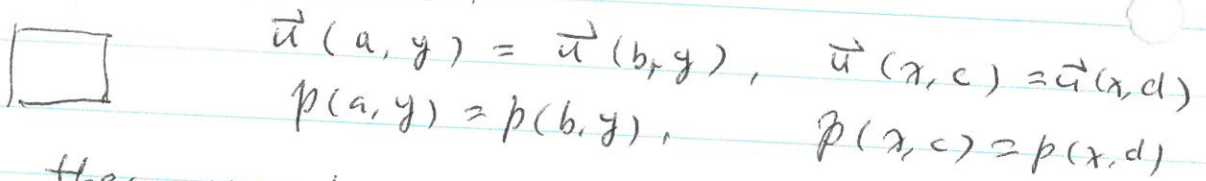 u⃗ (a, y) = u⃗ (b, y), u⃗ (x, c) = u⃗ (x, d)
p(a, y) = p(b, y), p(x, c) = p(x, d)